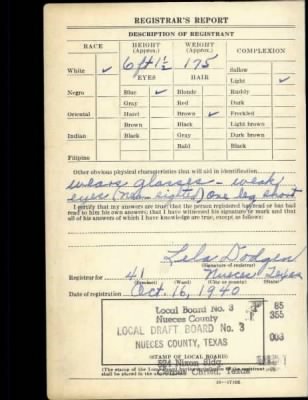 REGISTRAR'S REPORT
DESCRIPTION OF REGISTRANT
RACE HEIGHT (Approx.) WEIGHT (Approx.) COMPLEXION
6 ft 1½ 175
White ✓ EYES HAIR Sallow
Light ✓
Negro Blue ✓ Blonde Ruddy
Gray Red Dark
Oriental Hazel Brown ✓ Freckled
Brown Black Light brown
Indian Black Gray Dark brown
Bald Black
Filipino
Other obvious physical characteristics that will aid in identification
wears glasses - weak
eyes (Near-sighted) One leg short
I certify that my answers are true; that the person registered has read or has had
read to him his own answers; that I have witnessed his signature or mark and that
all of his answers of which I have knowledge are true, except as follows:
Lela Dodgen
(Signature of registrar)
Registrar for 41 Nueces Texas
(Precinct) (Ward) (City or county) (State)
Date of registration Oct. 16, 1940
Local Board No. 3 85
Nueces County 355
LOCAL DRAFT BOARD No. 3
NUECES COUNTY, TEXAS 003
(STAMP OF LOCAL BOARD)
324 Nixon Bldg.
Corpus Christi, Texas
(The stamp of the Local Board
shall be placed in the